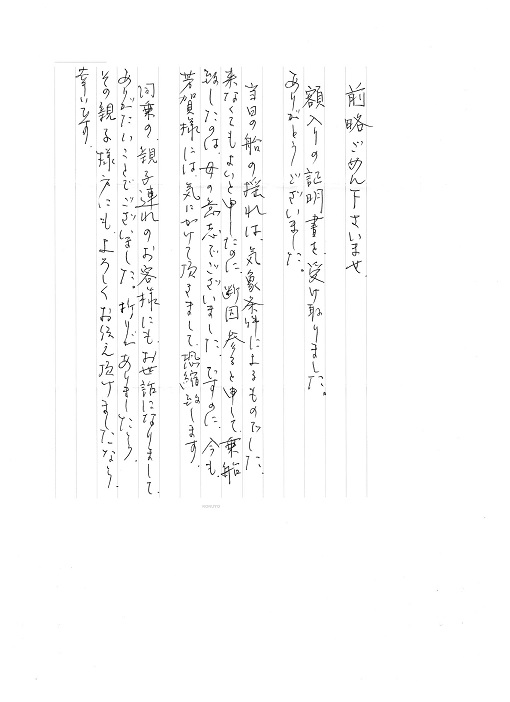 前略ごめん下さいませ
額入りの証明書を受け取りました。
ありがとうございました。
当日の船の揺れは、気象条件によるものでした
来なくてもよいと申したのに、断固参ると申して、乗船
致したのは、母の意志でございました。ですのに、今も
芳賀様には、気にかけて頂きまして、恐縮致します
同乗の、親子連れのお客様にも、お世話になりまして
ありがたいことでございました。折りがありましたら
その親子様方にも、よろしくお伝え頂けましたなら
幸いです。